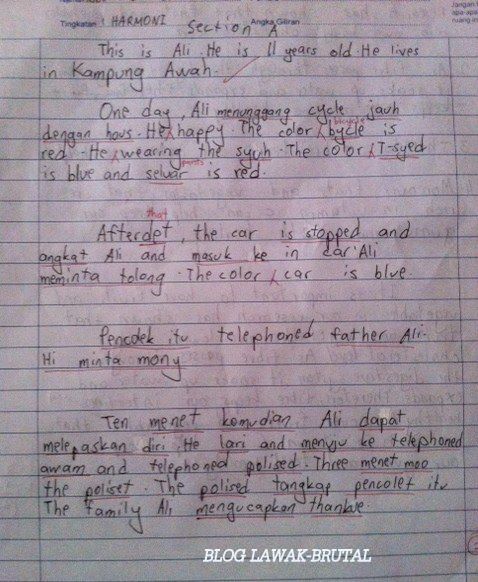 Tingkatan : HARMONI Angka Giliran
Section A
This is Ali. He is 11 years old. He lives
in Kampung Awah.
One day, Ali menunggang cycle jauh
bicycle
dengan hous. He happy. The color bycle is
red. He wearing the syuh. The color T-syed
pants
is blue and seluar is red.
that
Afterdet, the car is stopped and
angkat Ali and masuk ke in car. Ali
meminta tolong. The color car is blue.
Pencolek itu telephoned father Ali.
Hi minta mony
Ten menet kemudian Ali dapat
melepaskan diri. He lari and menuju ke telephoned
awam and telephoned polised. Three menet moo
the poliset. The polised tangkap pencolet itu
The family Ali mengucapkan thankue.
BLOG LAWAK-BRUTAL